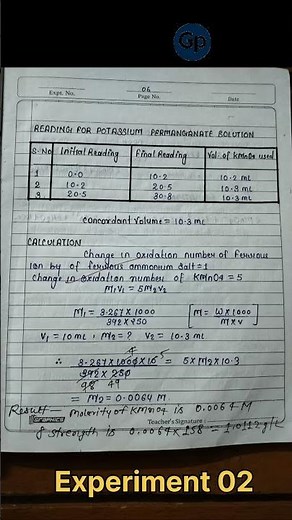 Gp
Expt. No.
06
Page No.
Date
READING FOR POTASSIUM PERMANGANATE SOLUTION
S.No Initial Reading Final Reading Vol. of KMnO4 used
1 0.0 10.2 10.2 mL
2 10.2 20.5 10.3 mL
3 20.5 30.8 10.3 mL
Concordant Volume = 10.3 mL
CALCULATION
Change in oxidation number of ferrous
ion by of ferrous ammonium salt = 1
Change in oxidation number of KMnO4 = 5
M1V1 = 5M2V2
M1 = 3.267 × 1000 / 392 × 250 [M = W × 1000 / M × V]
V1 = 10 mL, M2 = ? V2 = 10.3 mL
∴ 3.267 × 1000 × 10 / 392 × 250 = 5 × M2 × 10.3
4 5
98 49
= M2 = 0.0064 M
Result - Molerity of KMnO4 is 0.0064 M
GRAPHICS
Teacher's Signature
& strength is 0.0064 × 158 = 1.0112 g/L
Experiment 02